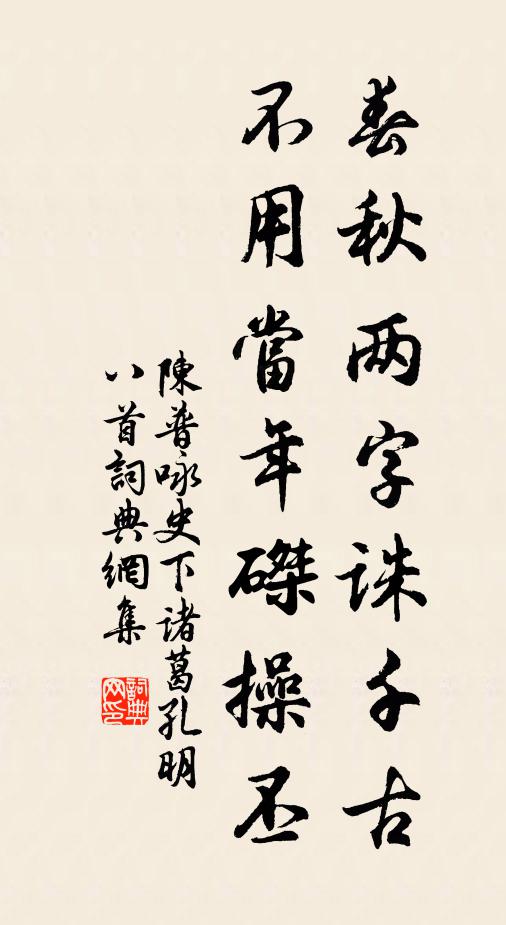 春秋两字誅千古
不用當年磔操丕
陳普咏史下诸葛孔明
八首詞典網集
詞典
网印